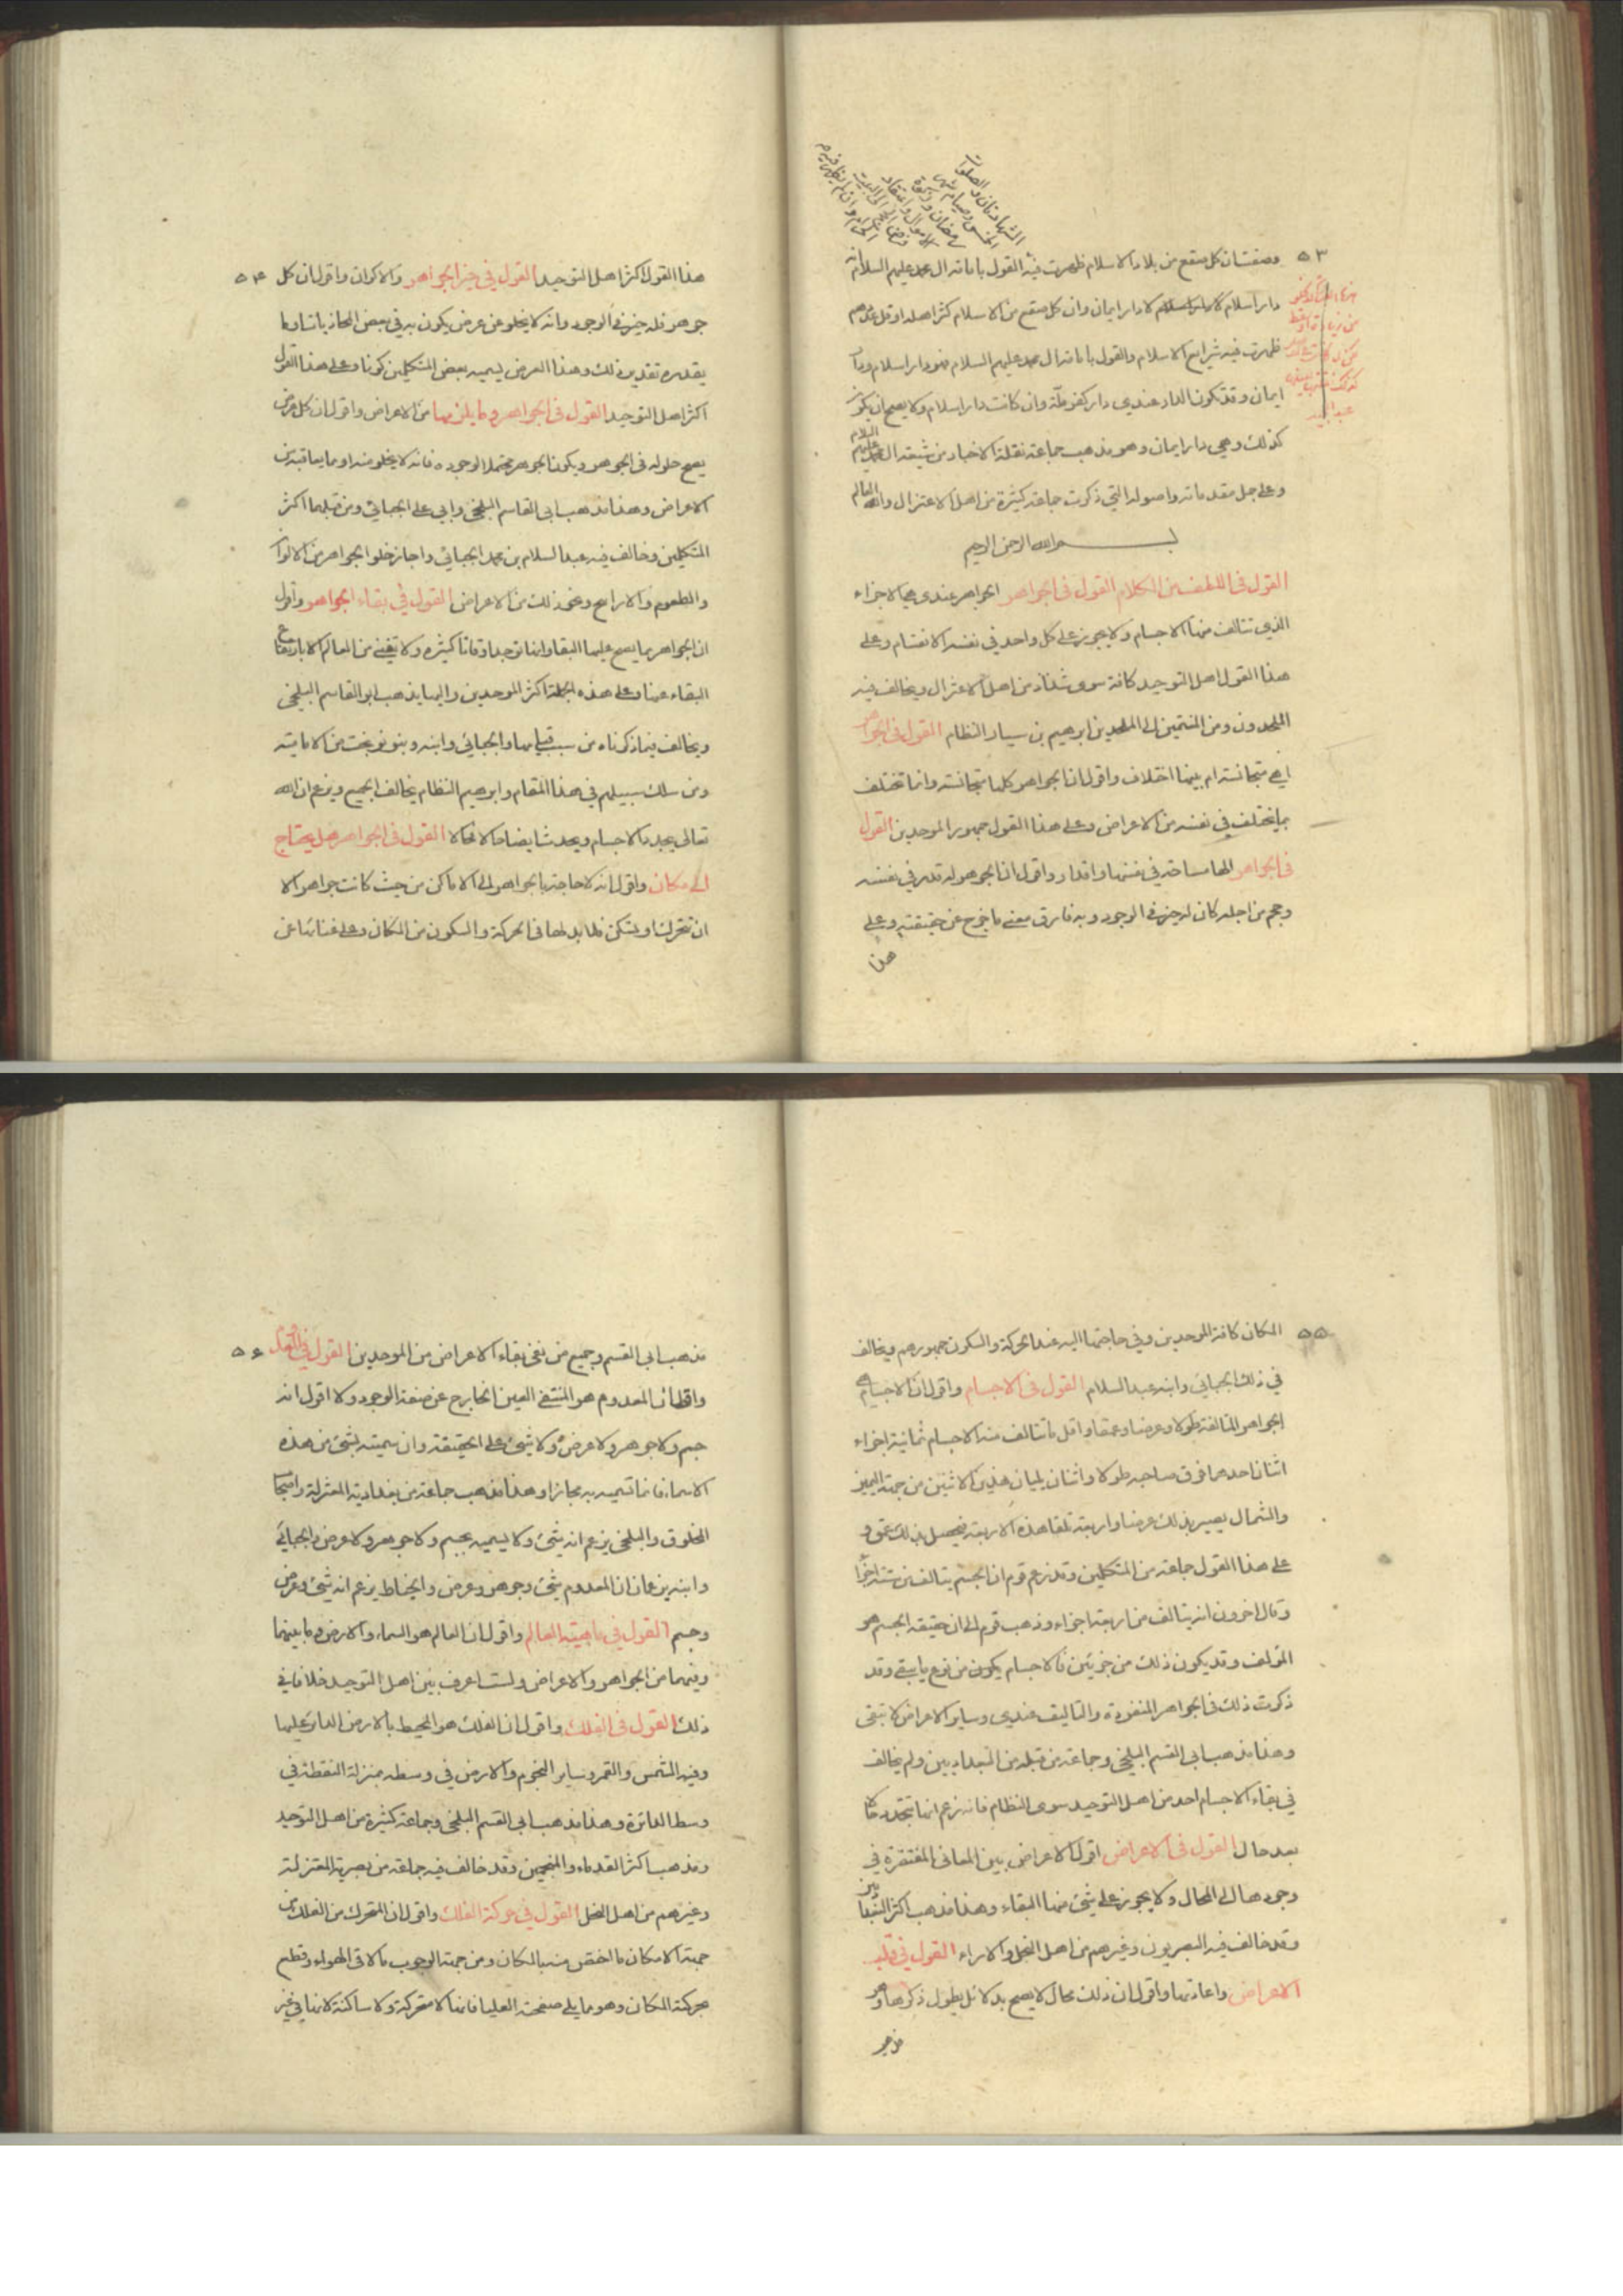 الشهادتان والصلوات
الخمس وصيام شهر
رمضان و
٥٣
وصفت ان كل صقع من بلاد الاسلام ظهرت فيه القول بامامة ال محمد عليهم السلام انه
دار اسلام لا دار ايمان وان كل صقع من الاسلام كثر اهله او قل عددهم
ظهرت فيه شرايع الاسلام والقول بامامة ال محمد عليهم السلام فهو دار اسلام ودار
ايمان وقد تكون الدار عندي دار كفر ملة وان كانت دار اسلام ولا يصح ان تكون
كذلك وهي دار ايمان وهو مذهب جماعة نقلة الاخبار من شيعة ال محمد عليهم السلام
وعلى جمل مقدماته واصوله التي ذكرت جماعة كثيرة من اهل الاعتزال والله العالم
بسم الله الرحمن الرحيم
القول في اللطيف من الكلام القول في الجواهر الجواهر عندي هي الاجزاء
الذي تتالف منها الاجسام ولا يجوز على كل واحد في نفسه الانقسام وعلى
هذا القول اهل التوحيد كافة سوى شذاذ من اهل الاعتزال ويخالف فيه
الملحدون ومن المنتمين الى الموحدين ابرهيم بن سيار النظام القول في الجواهر
اهي متجانسة ام بينها اختلاف واقول ان الجواهر كلها متجانسة وانما تختلف
بما يختلف في نفسه من الاعراض وعلى هذا القول جمهور الموحدين القول
في الجواهر الها مساحة في نفسها واقدار واقول ان الجوهر له قدر في نفسه
وحجم من اجله كان له حيز في الوجود وبه فارق معنى ما خرج عن حقيقته وعلى
هذا
٥٤
هذا القول اكثر اهل التوحيد القول في حيز الجواهر والاكوان واقول ان كل
جوهر فله حيز في الوجود وانه لا يخلو عن عرض يكون به في بعض المحاذيات او ما
يقدره تقدير ذلك وهذا العرض يسميه بعض المتكلمين كونا وعلى هذا القول
اكثر اهل التوحيد القول في الجواهر وما يلزمها من الاعراض واقول ان كل عرض
يصح حلوله في الجوهر ويكون الجوهر محتملا لوجوده فانه لا يخلو منه او ما يعاقبه من
الاعراض وهذا مذهب ابي القاسم البلخي وابي علي الجبائي ومن قبلهما اكثر
المتكلمين وخالف فيه عبد السلام بن محمد الجبائي واجاز خلو الجواهر من الالوان
والطعوم والارايح ونحو ذلك من الاعراض القول في بقاء الجواهر واقول
ان الجواهر مما يصح عليها البقاء وانها توجد اوقاتا كثيرة ولا تفنى من العالم الا بارتفاع
البقاء عنها وعلى هذه الجملة اكثر الموحدين واليها يذهب ابو القاسم البلخي
ويخالف فيما ذكرناه من سبب فنائها والجبائي وابنه وبنو نوبخت من الامامية
ومن سلك سبيلهم في هذا المقام وابرهيم النظام يخالف الجميع ويزعم ان الله
تعالى يجدد الاجسام ويحدثها حالا فحالا القول في الجواهر هل يحتاج
الى مكان واقول انه لا حاجة بالجواهر الى الاماكن من حيث كانت جواهر الا
ان تتحرك او تسكن فلا بد لها في الحركة والسكون من المكان وعلى غنائها عن
٥٥
المكان كافة الموحدين وفي حاجتها اليه عند الحركة والسكون جمهورهم ويخالف
في ذلك الجبائي وابنه عبد السلام القول في الاجسام واقول ان الاجسام هي
الجواهر المتالفة طولا وعرضا وعمقا واقل ما تتالف منه الاجسام ثمانية اجزاء
اثنان احدهما فوق صاحبه طولا واثنان يليان هذين الاثنين من جهة اليمين
والشمال يصير بذلك عرضا واربعة تلقاء هذه الاربعة فيحصل بذلك عمق و
على هذا القول جماعة من المتكلمين وقد زعم قوم ان الجسم يتالف من ستة اجزاء
وقال اخرون انه يتالف من اربعة اجزاء وذهب قوم الى ان حقيقة الجسم هو
المؤلف وقد يكون ذلك من جزئين فالاجسام يكون من نوع ما يبقى وقد
ذكرت ذلك في الجواهر المنفردة والتاليف عندي وساير الاعراض لا تبقى
وهذا مذهب ابي القسم البلخي وجماعة من قبله من البغداديين ولم يخالف
في بقاء الاجسام احد من اهل التوحيد سوى النظام فانه زعم انها تتجدد حالا
بعد حال القول في الاعراض اقول الاعراض بين المعاني المفتقرة في
وجودها الى المحال ولا يجوز على شئ منها البقاء وهذا مذهب اكثر البغداديين
وقد خالف فيه البصريون وغيرهم من اهل النحل والاراء القول في قلب
الاعراض واعادتها واقول ان ذلك محال لا يصح بدلائل يطول ذكرها وهو
مذهب
٥٦
مذهب ابي القسم وجميع من نفى بقاء الاعراض من الموحدين القول في المعدوم
واقول ان المعدوم هو المنتفي العين الخارج عن صفة الوجود ولا اقول انه
جسم ولا جوهر ولا عرض ولا شئ على الحقيقة وان سميته بشئ من هذه
الاسماء فانما تسميه به مجازا وهذا مذهب جماعة من بغدادية المعتزلة واصحاب
المخلوق والبلخي يزعم انه شئ ولا يسميه بجسم ولا جوهر ولا عرض والجبائي
وابنه يزعمان ان المعدوم شئ وجوهر وعرض والخياط يزعم انه شئ وعرض
وجسم القول في ماهية العالم واقول ان العالم هو السماء والارض وما بينهما
وفيهما من الجواهر والاعراض ولست اعرف بين اهل التوحيد خلافا في
ذلك القول في الفلك واقول ان الفلك هو المحيط بالارض الدائر عليها
وفيه الشمس والقمر وساير النجوم والارض في وسطه بمنزلة النقطة في
وسط الدائرة وهذا مذهب ابي القسم البلخي وجماعة كثيرة من اهل التوحيد
ومذهب اكثر القدماء والمنجمين وقد خالف فيه جماعة من بصرية المعتزلة
وغيرهم من اهل النحل القول في حركة الفلك واقول ان المتحرك من الفلك من
جهة الامكان ما اختص منه بالمكان ومن جهة الوجوب ما لاقى الهواء وقطع
بحركة المكان وهو ما يلي صفحته العليا فانها لا متحركة ولا ساكنة لانها في غير